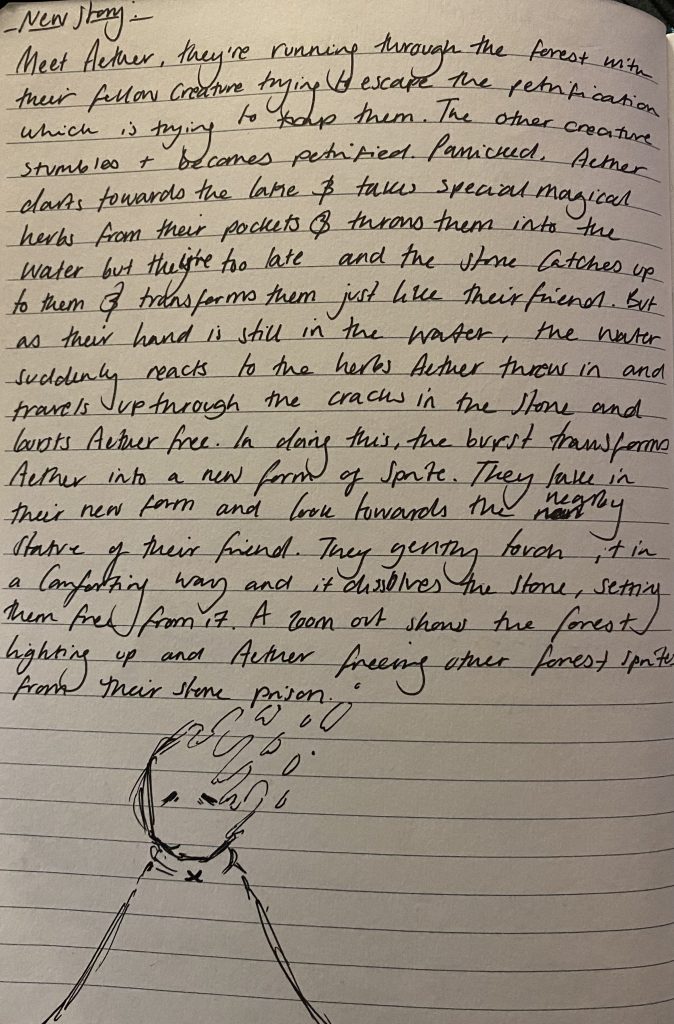 - New Story -
Meet Aether, they're running through the forest with
their fellow creature trying to escape the petrification
which is trying to trap them. The other creature
stumbles + becomes petrified. Panicked, Aether
darts towards the lake & takes special magical
herbs from their pockets & throws them into the
water but they're too late and the stone catches up
to them & transforms them just like their friend. But
as their hand is still in the water, the water
suddenly reacts to the herbs Aether threw in and
travels up through the cracks in the stone and
bursts Aether free. In doing this, the burst transforms
Aether into a new form of sprite. They take in
their new form and look towards the nearby
statue of their friend. They gently touch it in
a comforting way and it dissolves the stone, setting
them free from it. A zoom out shows the forest
lighting up and Aether freeing other forest sprites
from their stone prison.